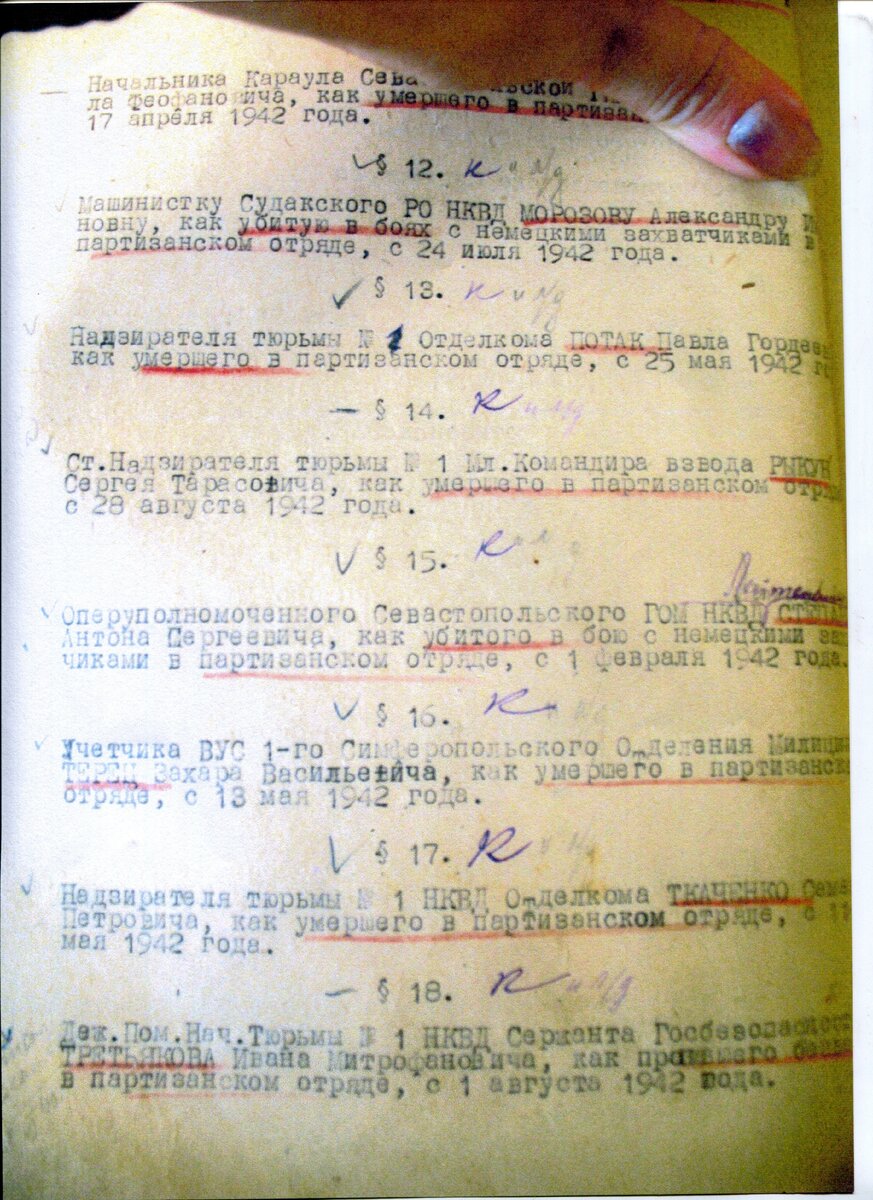 Начальника Караула
ла Феофановича, как умершего в
17 апреля 1942 года.
§ 12.
Машинистку Судакского РО НКВД МОРОЗОВУ Александру
новну, как убитую в боях с немецкими захватчиками в
партизанском отряде, с 24 июля 1942 года.
§ 13.
Надзирателя тюрьмы № 1 Отделкома ПОТАК Павла
как умершего в партизанском отряде, с 25 мая 1942
§ 14.
Ст.Надзирателя тюрьмы № 1 Мл.Командира взвода РЫКУН
Сергея Тарасовича, как умершего в партизанском
с 28 августа 1942 года.
§ 15.
Оперуполномоченного Севастопольского ГОМ НКВД
Антона Сергеевича, как убитого в бою с немецкими
чиками в партизанском отряде, с 1 февраля 1942 года.
§ 16.
Учетчика ВУС 1-го Симферопольского Отделения
ТЕРЕЦ Захара Васильевича, как умершего в
отряде, с 13 мая 1942 года.
§ 17.
Надзирателя тюрьмы № 1 НКВД Отделкома ТКАЧЕНКО
Петровича, как умершего в партизанском отряде, с 11
мая 1942 года.
§ 18.
Деж.Пом.Нач.Тюрьмы № 1 НКВД Сержанта
ТРЕТЬЯКОВА Ивана Митрофановича, как
в партизанском отряде, с 1 августа 1942 года.